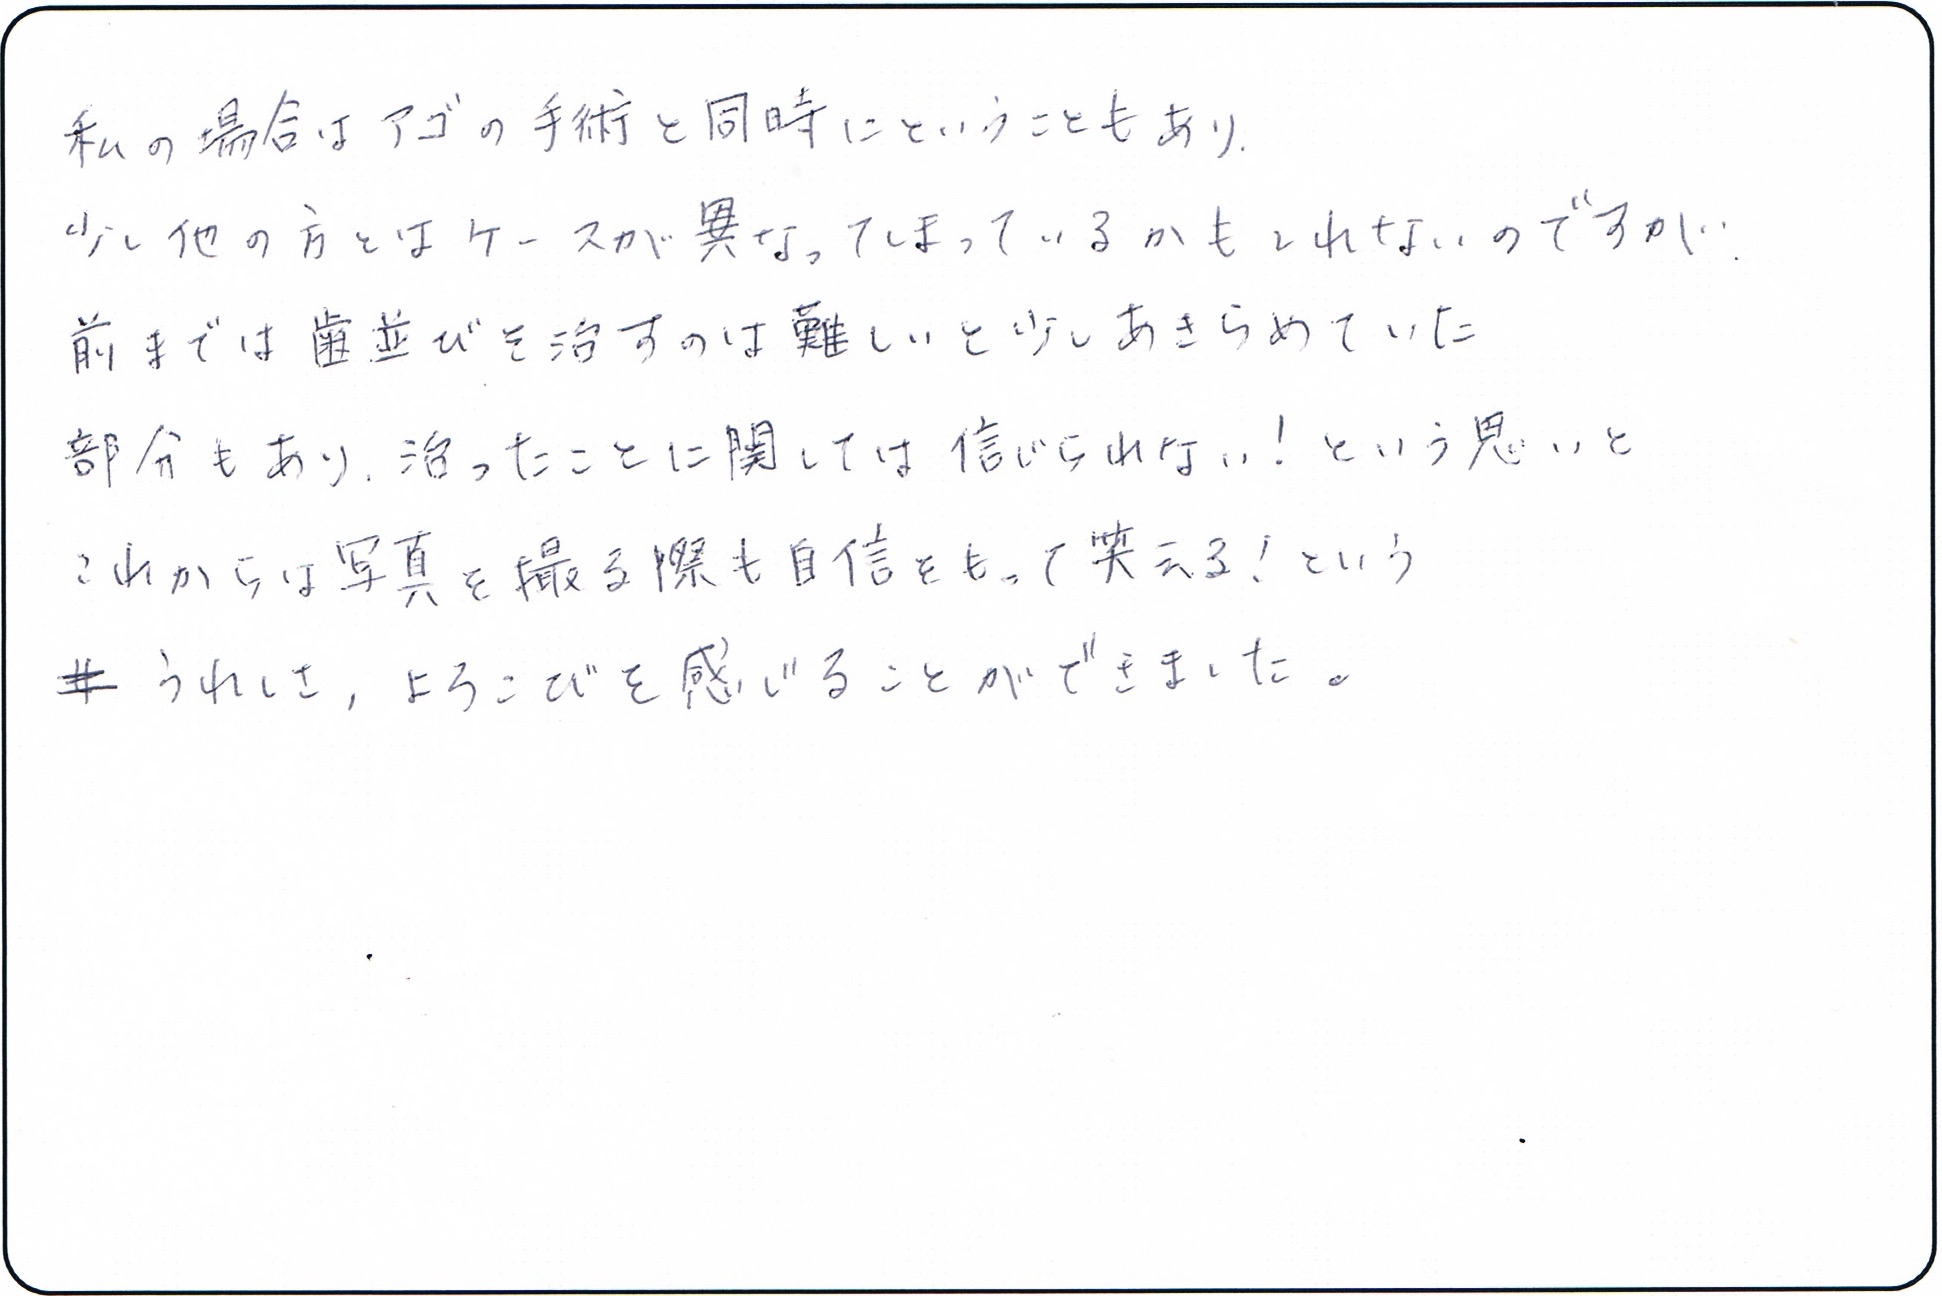 私の場合はアゴの手術と同時にということもあり、
少し他の方とはケースが異なってしまっているかもしれないのですが…
前までは歯並びを治すのは難しいと少しあきらめていた
部分もあり、治ったことに関しては信じられない!という思いと
これからは写真を撮る際も自信をもって笑える!という
うれしさ、よろこびを感じることができました。